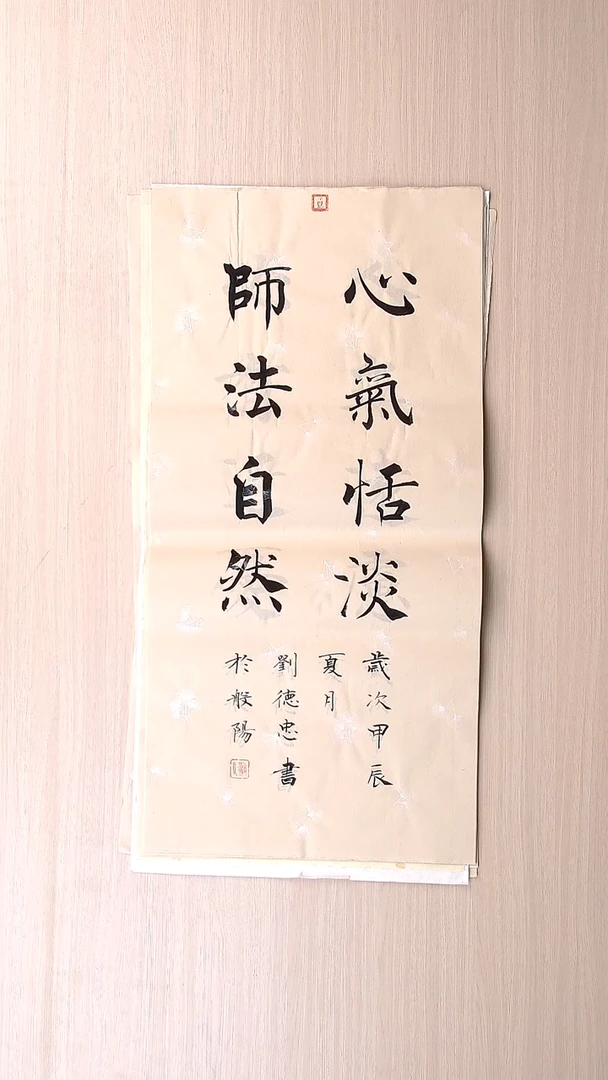 心氣恬淡
師法自然
歲次甲辰
夏月
劉德忠書
於般陽